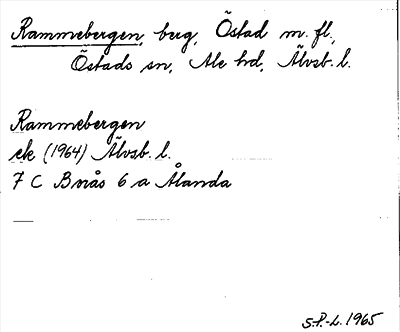 Rammebergen, berg, Östad m. fl.,
Östads sn, Ale hd, Älvsb. l.
Rammebergen
ek (1964) Älvsb. l.
7 C Borås 6 a Ålanda
S.P.-L. 1965